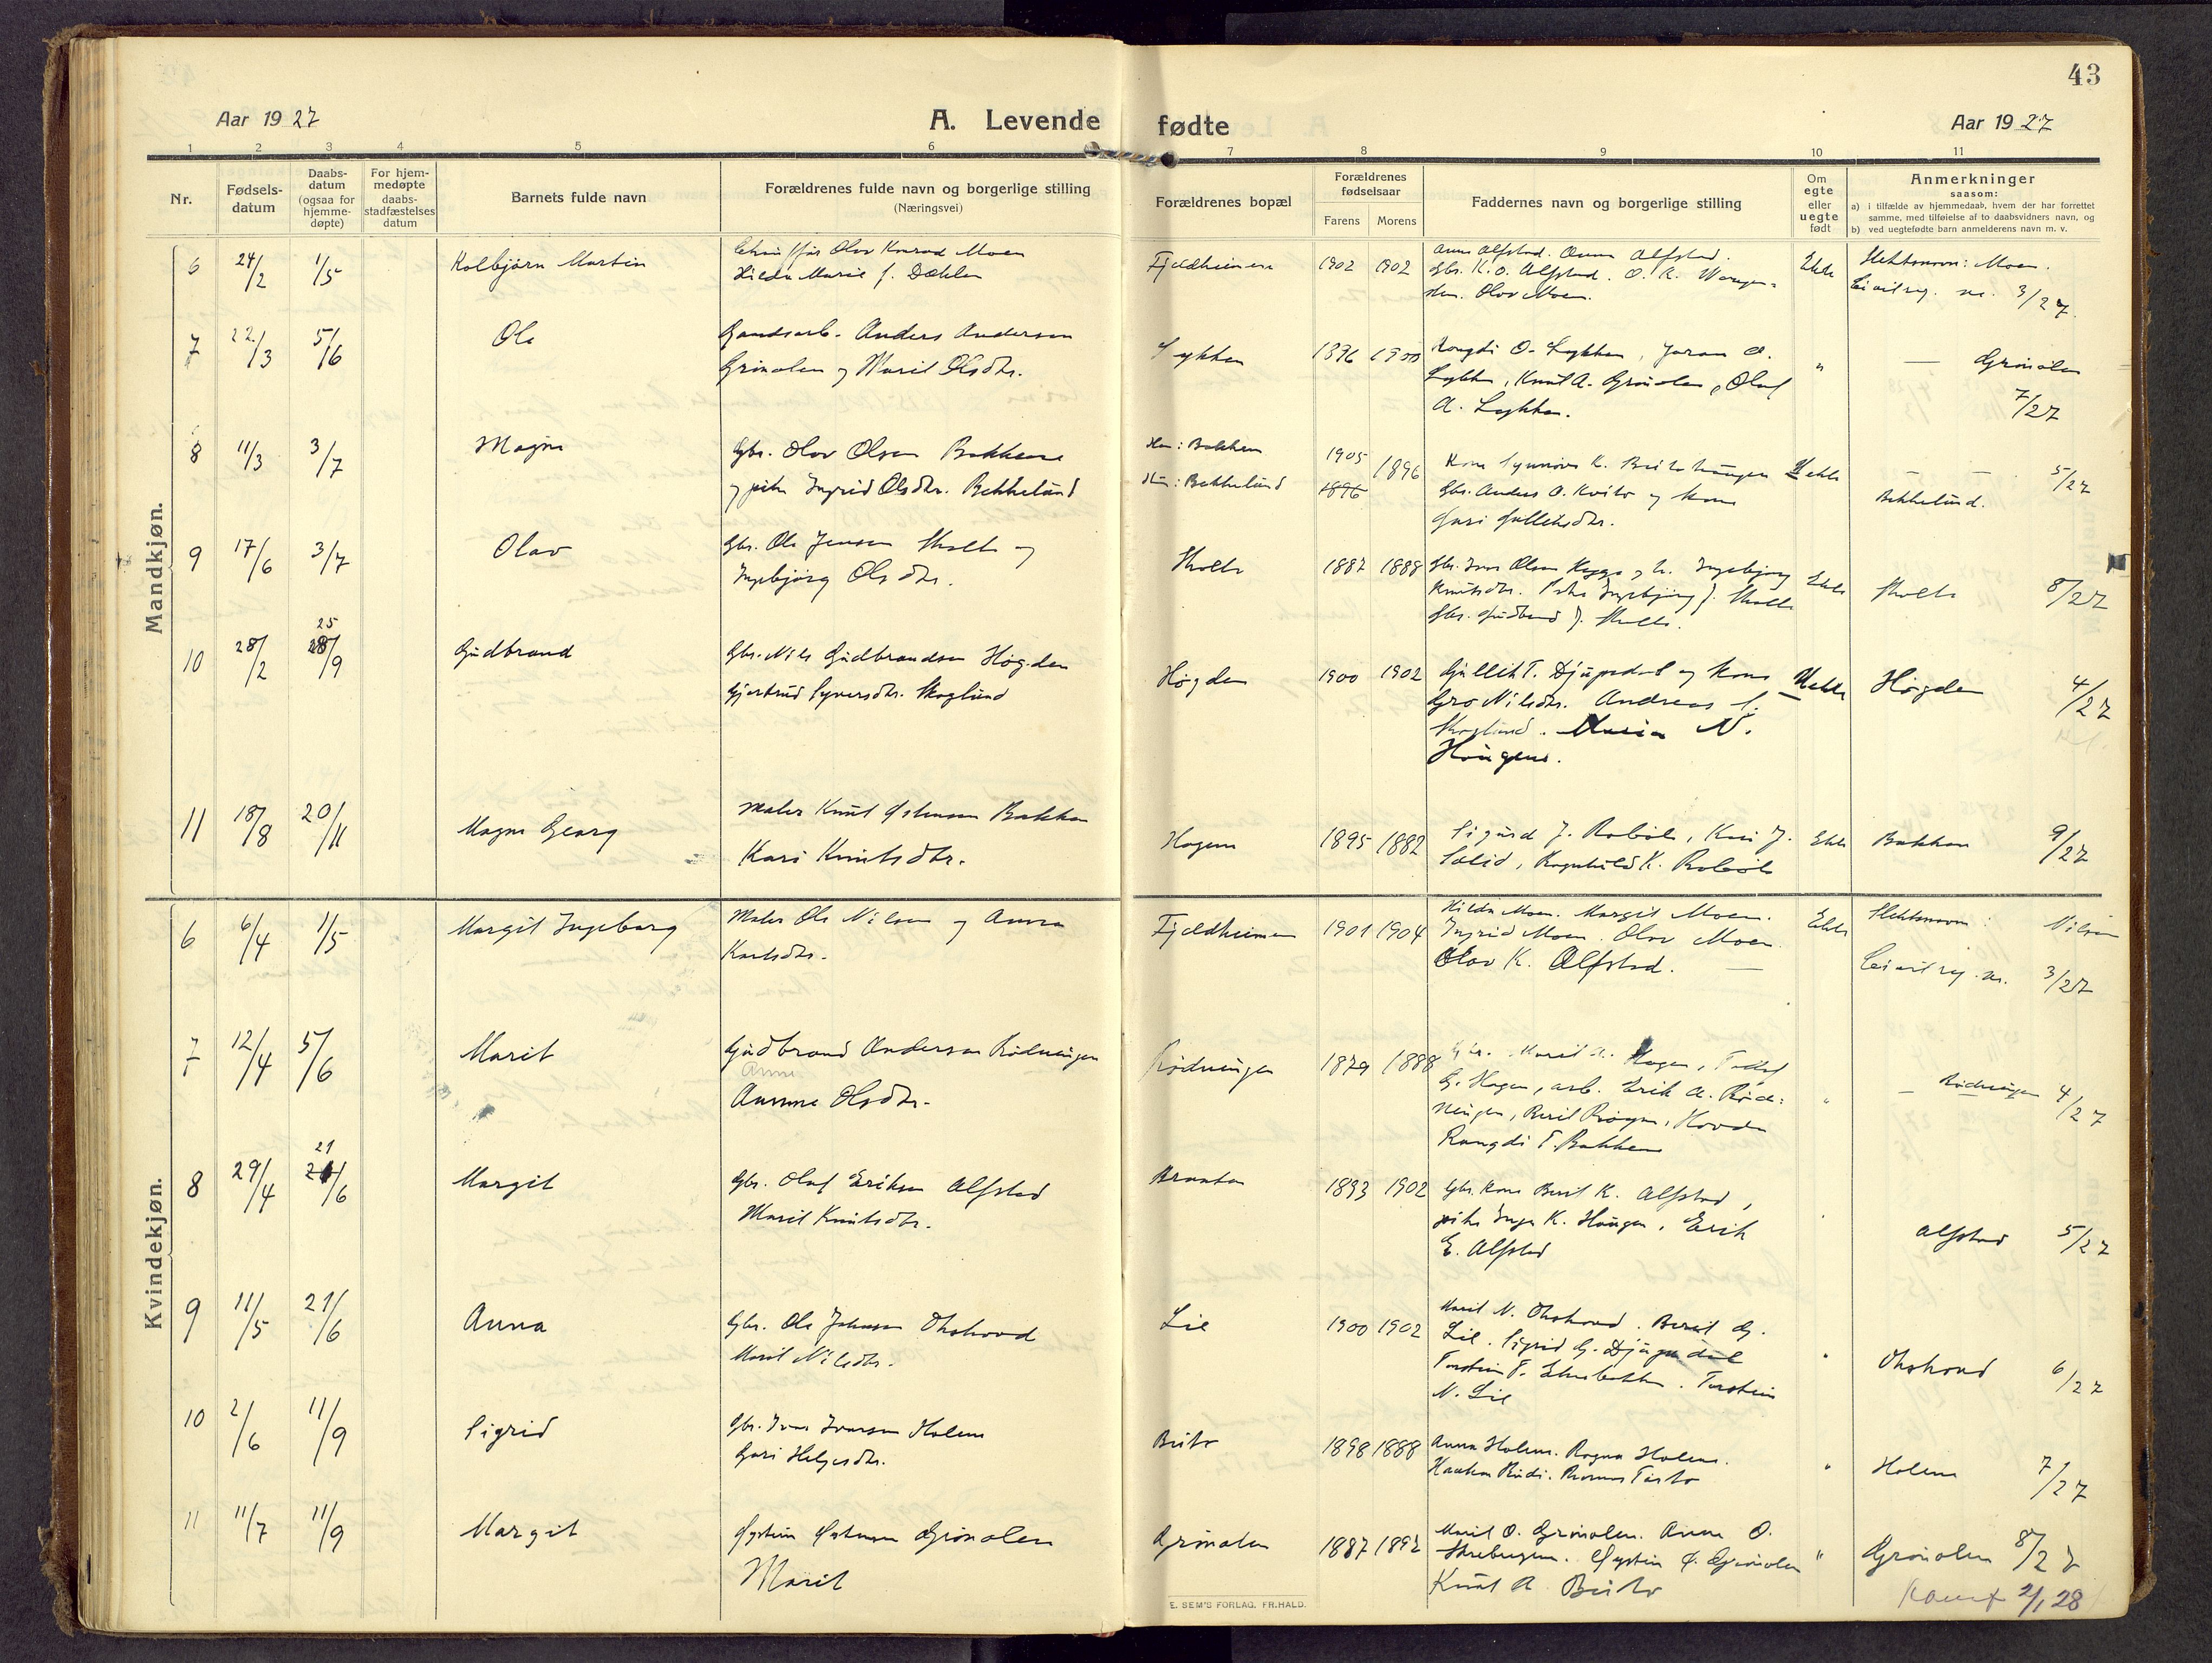 43
Aar 1927
A. Levende fødte
Aar 1927
1 2 3 4 5 6 7 8 9 10 11
Nr.
Fødsels-
datum
Daabs-
datum
(ogsaa for
hjemme-
døpte)
For hjem-
medøpte
daabs-
stadfæstelses
datum
Barnets fulde navn
Forældrenes fulde navn og borgerlige stilling
(Næringsvei)
Forældrenes bopæl
Forældrenes
fødselsaar
Farens Morens
Faddernes navn og borgerlige stilling
Om
egte
eller
uegte
født
Anmerkninger
saasom:
a) i tilfælde av hjemmedaab, hvem der har forrettet
samme, med tilføielse af to daabsvidners navn, og
b) ved uegtefødte barn anmelderens navn m. v.
Mandkjøn.
6 24/2 1/5 Kolbjørn Martin
Olav Konrad Moen
Hilda Marie f. Dæhlen
Fjeldheimen 1902 1902
Anna Alfstad.
Gbr. K. O. Alfstad. O. K.
Olav Moen.
Ekte
Slektsnavn: Moen.
Civilreg. nr. 3/27.
7 22/3 5/6 Ole
Gaardsarb. Anders Andersen
Grinolen og Marit Olsdtr.
Lykken 1896 1900
Rangdi O. Lykken, Joran O.
Lykken, Knut A. Grønolen, Olaf
A. Lykken.
"
— Grønolen
7/27
8 11/3 3/7 Magne
Gbr. Olav Olsen Bakkene
og pike Ingrid Olsdtr. Bekkelund
Han: Bakken
Hun: Bekkelund
1905 1896
1896
Kone Synnøve K.
Gbr. Anders O. Kvito og kone
Guri Gulleiksdtr.
Uekte
— — 5/27
Bekkelund.
9 17/6 3/7 Olav
Gbr. Ole Jensen Skolt og
Ingebjørg Olsdtr.
1887 1888
Gbr. Iver Olsen Rogge og h. Ingebjørg
Knutsdtr. Pike Ingebjørg J.
Gbr. Gudbrand J.
Ekte
8/27
10 28/2 25 28/9 Gudbrand
Gbr. Nils Gudbrandsen Høgden
Gjertrud Syversdtr. Skoglund
Høgden 1900 1902
Gullik T. Djupedal og kone
Gro Nilsdtr. Andreas S.
Skoglund. Maria N.
Haugene.
Uekte
Høgden 4/27
11 18/8 20/11 Magne Georg
Maler Knut Østensen Bakken
Kari Knutsdtr.
Hagene 1895 1882
Sigurd J. Robøle, Kari J.
Solid, Ragnhild K. Robøle
Ekte
Bakken 9/27
Kvindekjøn.
6 6/4 1/5 Margit Ingeborg
Maler Ole Nilsen og Anna
Knutsdtr.
Fjeldheimen 1901 1904
Hilda Moen. Margit Moen.
Ingrid Moen. Olav Moen.
Olav K. Alfstad. —
Ekte
Slektsnavn: Nilsen
Civilreg. nr. 3/27
7 12/4 5/6 Marit
Gudbrand Andersen Rødningen
Anne
Anne Olsdtr.
Rødningen 1879 1888
Gbr. Marit A. Hagen, Tollef
G. Hagen, arb. Erik A. Rød-
ningen, Hovda
Rangdi T. Bakken
"
— Rødningen 4/27
8 29/4 21 21/6 Margit
Gbr. Olaf Eriksen Alfstad
Marit Knutsdtr.
Braaten 1893 1902
Gbr. kone Berit K. Alfstad,
pike Inga K. Haugen, Erik
E. Alfstad
Alfstad 5/27
9 11/5 21/6 Anna
Gbr. Ole Johnsen Okshovd
Marit Nilsdtr.
Lie 1900 1902
Marit N. Okshovd. Berit G.
Lie. Sigrid G. Djupedal
Torstein T. Torstein
N. Lie
"
Okshovd 6/27
10 2/6 11/9 Sigrid
Gbr. Iver Iversen Holene
Guri Helgesdtr.
Beito 1898 1888
Anna Holene. Ragna Holene.
Haakon Rudi.
"
Holene 7/27
11 11/7 11/9 Margit
Øystein Østensen Grønolen
Marit
Grønolen 1887 1892
Marit O. Grønolen. Anne O.
Øystein Ø. Grønolen
Knut A Beito
"
Grønolen 8/27
2/1 28
E. SEM'S FORLAG. FR.HALD.